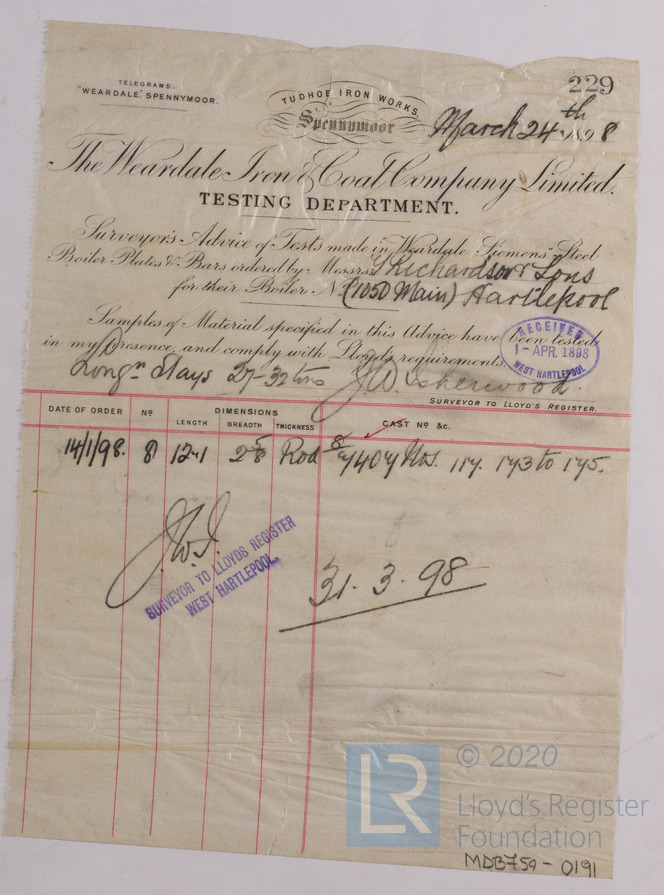 229
TELEGRAMS:-
"WEARDALE," SPENNYMOOR.
TUDHOE IRON WORKS,
Spennymoor
March 24th 1898
The Weardale Iron & Coal Company Limited.
TESTING DEPARTMENT.
Surveyor's Advice of Tests made in Weardale "Siemens" Steel
Boiler Plates & Bars ordered by Messrs T Richardson & Sons
for their Boiler No (1050 Main) Hartlepool
Samples of Material specified in this Advice have been tested
in my presence, and comply with Lloyd's requirements.
RECEIVED
1 - APR. 1898
WEST HARTLEPOOL
Longn Stays 27-32 tons
SURVEYOR TO LLOYD'S REGISTER.
DATE OF ORDER No DIMENSIONS CAST No &c.
LENGTH BREADTH THICKNESS
14/1/98. 8 12-1 2 5/8 Rod Nos. 117. 173 to 175.
SURVEYOR TO LLOYDS REGISTER
WEST HARTLEPOOL.
31. 3. 98
LR
© 2020
Lloyd's Register
Foundation
MDB759 - 0191